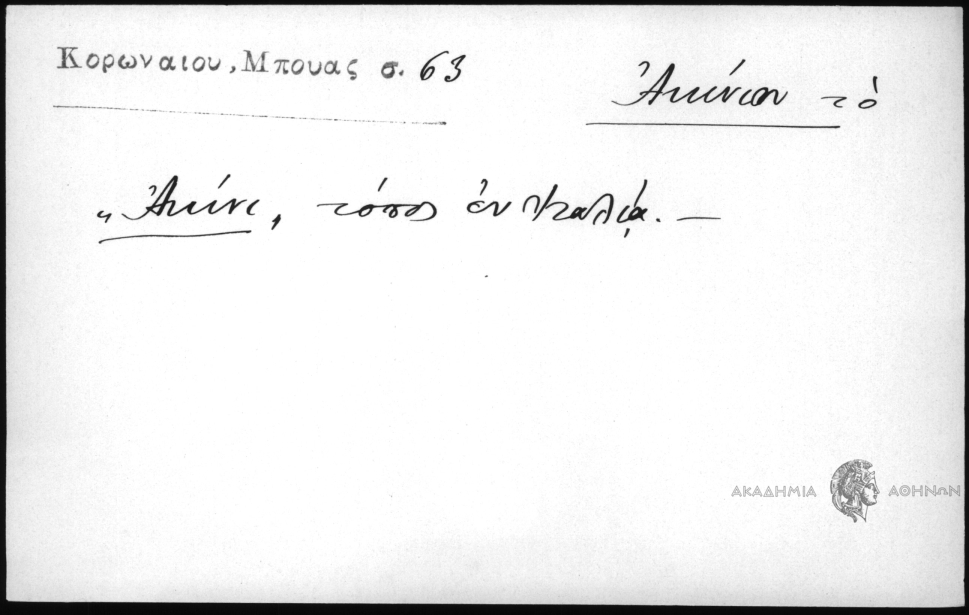 Κορωναιου, Μπουας σ. 63
Ἀκίνιον τὸ
„Ἀκίνι„ τόπος ἐν Ἰταλίᾳ. —
ΑΚΑΔΗΜΙΑ ΑΘΗΝΩΝ